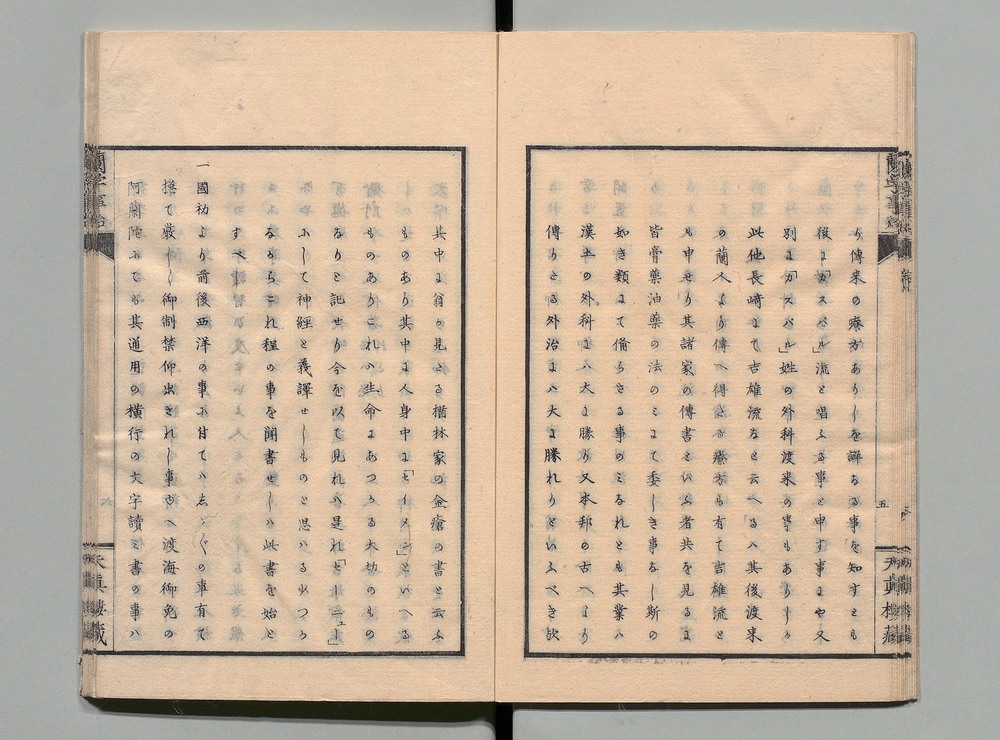 り傳来の療方ありしを解なる事を知すとも
後よ「カスパル」流と唱ふる事と申す事よや又
別よ「カスパル」姓の外科渡来の事もありしよ
此他長崎よて吉雄流なと云へるハ其後渡来
の蘭人より傳へ得たる療方も有て吉雄流と
も申せり其諸家の傳書といふ者共を見るよ
皆膏藥油藥の法のミよて委しき事なし斯の
如き類よて備らさる事のミなれとも其業ハ
漢土の外科よハ大よ勝り又本邦の古へより
傳りたる外治よハ大よ勝れりといふへき歟
五
天真楼蔵
其中よ翁の見たる楢林家の金瘡の書と云ふ
ものあり其中よ人身中よ「セイメン」といへる
ものありこれハ生命よあつかる大切のもの
なりと記せり今を以て見れハ是れ「セーニュー」
ふして神經と義譯せしものと思ハるわつか
なからこれ程の事を聞書せしハ此書を始と
すへし
一國初より前後西洋の事ふ付てハ志かくの事有て
揔て嚴しく御制禁仰出されし事ゆへ渡海御免の
阿蘭陀ふても其通用の横行の文字讀ミ書の事ハ
蘭学事始
六
天真樓蔵